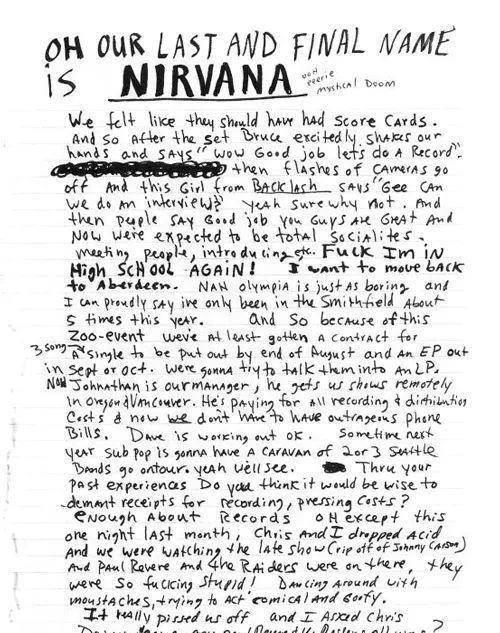 OH OUR LAST AND FINAL NAME
is NIRVANA ooh eerie mystical Doom
We felt like they should have had score cards.
And so after the set Bruce excitedly shakes our
hands and says "wow Good job lets do A Record".
then flashes of cameras go
off And this Girl from BACKlash says "Gee Can
we do an interview?" yeah sure why not. And
then people say Good job you guys are Great And
Now were expected to be total socialites.
meeting people, introducing etc. Fuck Im in
High SCHOOL AGAIN! I want to move BACK
to Aberdeen. NAH olympia is just as boring and
I can proudly say ive only been in the Smithfield About
5 times this year. And so because of this
Zoo-event weve at least gotten a contract for
3 song A single to be put out by end of August and an EP out
in Sept or Oct. were gonna try to talk them into an LP.
Now Johnathan is our manager, he gets us shows remotely
in oregon & Vancouver. He's paying for all recording & distribution
Costs & now we don't have to have outrageous phone
Bills. Dave is working out ok. Sometime next
year Sub pop is gonna have a CARAVAN of 2 or 3 Seattle
Bands go on tour. yeah well see. Thru your
past experiences Do you think it would be wise to
demand receipts for recording, pressing Costs?
enough About Records OH except this
one night last month, Chris and I dropped acid
and we were watching the late show (rip off of Johnny Carson)
and Paul Revere and the Raiders were on there, they
were so fucking stupid! Dancing around with
moustaches, trying to act comical and Goofy.
It really pissed us off and I Asked Chris